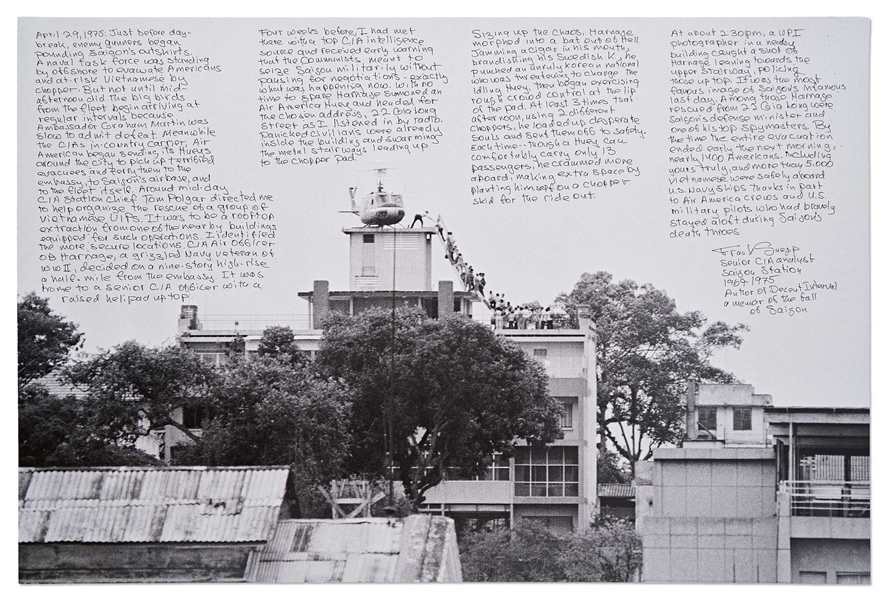 April 29, 1975: Just before day-
break, enemy gunners began
pounding Saigon's outskirts.
A naval task force was standing
by offshore to evacuate Americans
and at-risk Vietnamese by
chopper. But not until mid-
afternoon did the big birds
from the fleet begin arriving at
regular intervals because
Ambassador Graham Martin was
slow to admit defeat. Meanwhile
the CIA's in-country carrier, Air
American began sending its Hueys
around the city to pick up terrified
evacuees and ferry them to the
embassy, to Saigon's airbase, and
to the fleet itself. Around mid-day
CIA Station Chief Tom Polgar directed me
to help organize the rescue of a group of
Vietnamese VIPs. It was to be a rooftop
extraction from one of the nearby buildings
equipped for such operations. I identified
the more secure locations. CIA Air Officer
OB Harnage, a grizzled Navy veteran of
WWII, decided on a nine-story high-rise
a half-mile from the embassy. It was
home to a senior CIA officer with a
raised helipad up top.
Four weeks before, I had met
there with a top CIA intelligence
source and received early warning
that the Communists meant to
seize Saigon militarily without
pausing for negotiations - exactly
what was happening now. With no
time to spare Harnage summoned an
Air America Huey and headed for
the chosen address, 22 Gia Long
Street as I listened in by radio.
Panicked civilians were already
inside the building and swarming
the metal stairways leading up
to the chopper pad
Sizing up the chaos, Harnage
morphed into a bat out of Hell
Jamming a cigar in his mouth,
brandishing his Swedish K, he
punched an unruly Korean national
who was threatening to charge the
idling Huey, then began exercising
rough crowd control at the lip
of the pad. At least 3 times that
afternoon, using 2 different
choppers, he loaded up desperate
souls and sent them off to safety.
Each time -- though a Huey can
comfortably carry only 13
passengers, he crammed more
aboard, making extra space by
planting himself on a chopper
skid for the ride out.
At about 2:30pm, a UPI
photographer in a nearby
building caught a shot of
Harnage leaning towards the
upper stairway, pulling
those up top. It was the most
famous image of Saigon's infamous
last day. Among those Harnage
rescued from 22 Gia Long were
Saigon's defense minister and
one of his top spymasters. By
the time the entire evacuation
ended early the next morning,
nearly 1400 Americans, including
yours truly, and more than 5,000
Vietnamese were safely aboard
U.S. Navy ships thanks in part
to Air America crews and U.S.
military pilots who had bravely
stayed aloft during Saigon's
death throes.
Frank Snepp
Senior CIA analyst
Saigon Station
1969-1975
Author of Decent Interval
a memoir of the fall
of Saigon